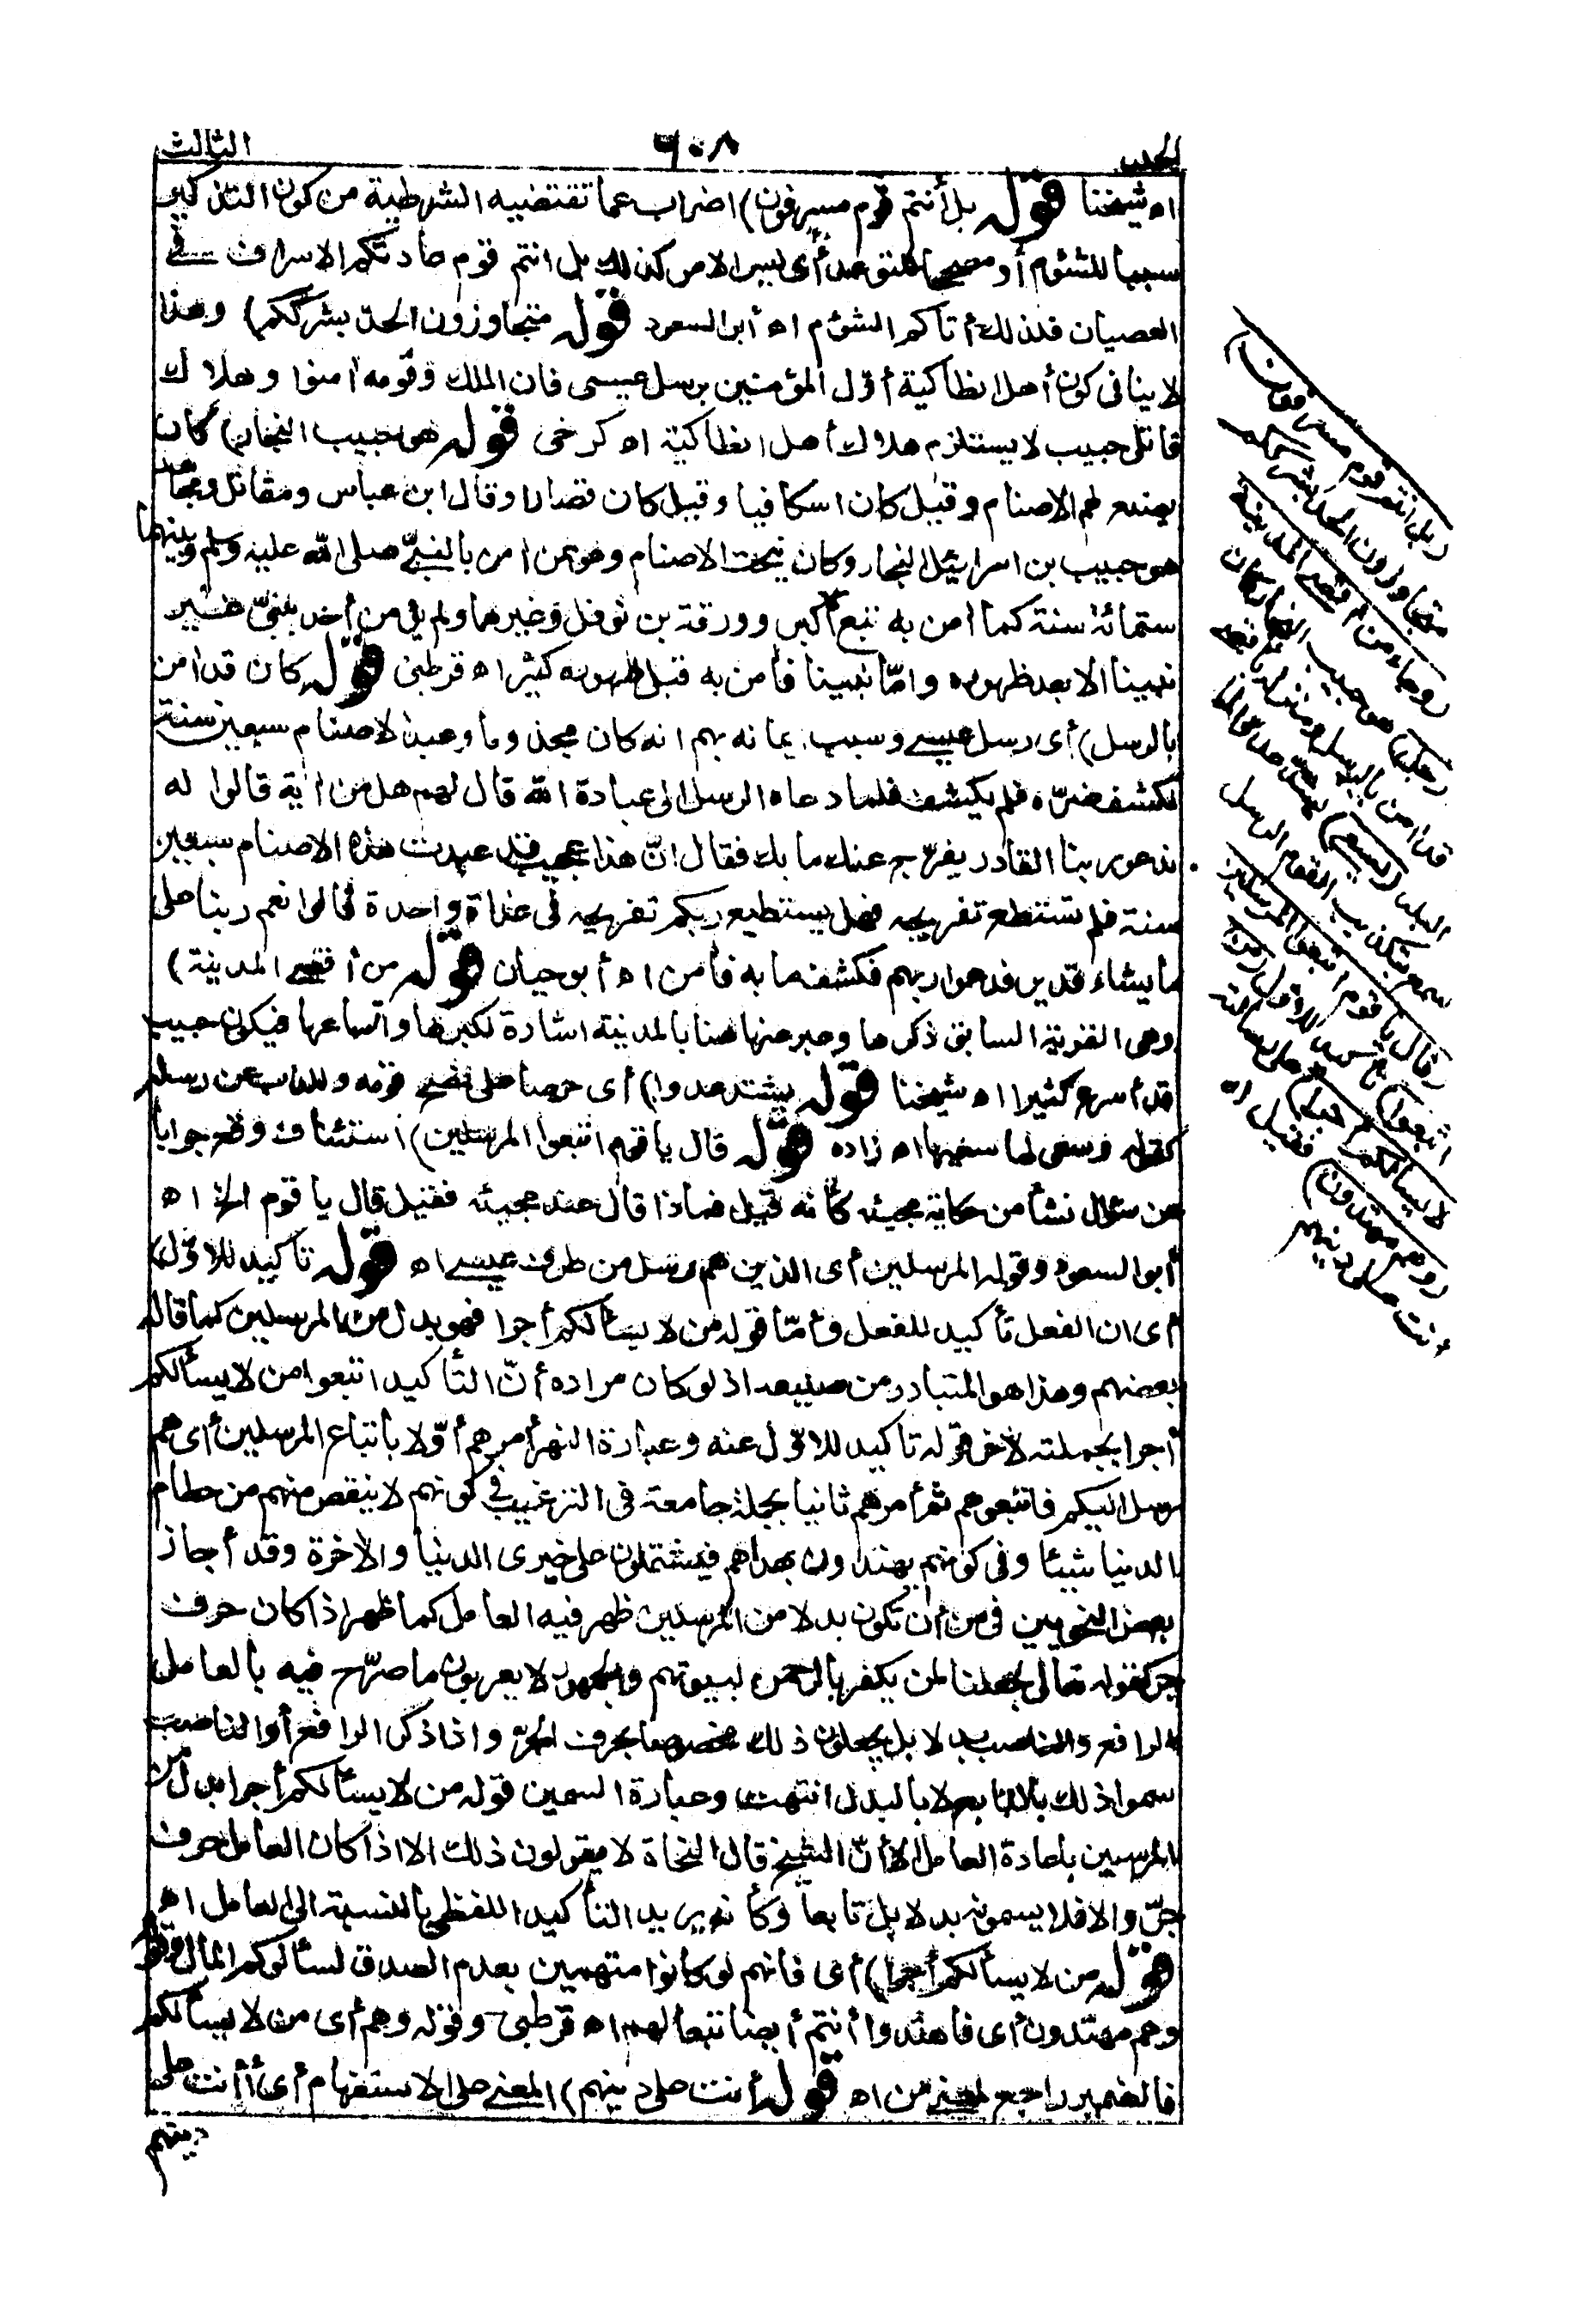 الجلد ٦٠٨ الثالث
اه شيخنا قوله بل أنتم قوم مسرفون) اضراب عما تقتضيه الشرطية من كون التذكير
سببا للشئوم أو مصححا للتوعد أى ليس الامر كذلك بل انتم قوم عادتكم الاسراف فى
العصيان فلذلك أتاكم الشؤم اه أبو السعود قوله متجاوزون الحد بشرككم) وهذا
لا ينافى كون أهل انطاكية أوّل المؤمنين برسل عيسى فان الملك وقومه امنوا وهلاك
قاتلى حبيب لا يستلزم هلاك أهل انطاكية اه كرخى قوله هو حبيب النجار) كان
يصنع لهم الاصنام وقيل كان اسكافيا وقيل كان قصارا وقال ابن عباس ومقاتل ومجاهد
هو حبيب بن اسرائيل النجار وكان ينحت الاصنام وهو ممن امن بالنبىّ صلى الله عليه وسلم وبينهما
ستمائة سنة كما امن به تبع الاكبر وورقة بن نوفل وغيرهما ولم يؤمن أحد بنبىّ غير
نبينا الا بعد ظهوره وامّا نبينا فأمن به قبل ظهوره كثير اه قرطبى قوله كان قد امن
بالرسل) أى رسل عيسى وسبب ايمانه بهم انه كان مجذوما وعبد الاصنام سبعين سنة
لكشف ضرّه فلم يكشف فلما دعاه الرسل الى عبادة الله قال لهم هل من اية قالوا له
ندعو ربنا القادر يفرّج عنك ما بك فقال انّ هذا عجيب قد عبدت هذه الاصنام سبعين
سنة فلم تستطع تفريجه فهل يستطيع ربكم تفريجه فى غداة واحدة قالوا نعم ربنا على
ما يشاء قدير فدعوا ربهم فكشف ما به فأمن اه أبو حيان قوله من أقصى المدينة)
وهى القرية السابق ذكرها وعبر عنها هنا بالمدينة اشارة لكبرها واتساعها فيكون حبيب
قد أسرع كثيرا اه شيخنا قوله يشتد عدوا) أى حرصا على نصح قومه والذب عن رسله
كقوله وسعى لها سعيها اه زاده قوله قال يا قوم اتبعوا المرسلين) استئناف وقع جوابا
عن سؤال نشأ من حكاية مجيئه كأنه قيل فماذا قال عند مجيئه فقيل قال يا قوم الخ اه
أبو السعود وقوله المرسلين أى الذين هم رسل من طرف عيسى اه قوله تأكيد للاوّل)
أى ان الفعل تأكيد للفعل وأمّا قوله من لا يسألكم أجرا فهو بدل من المرسلين كما قاله
بعضهم وهذا هو المتبادر من صنيعه اذ لو كان مراده أنّ التأكيد اتبعوا من لا يسألكم
أجرا بجملته لأخر قوله تأكيد للاوّل عنه وعبارة النهر أمرهم أوّلا باتباع المرسلين أى هم
رسل اليكم فاتبعوهم ثم أمرهم ثانيا بجملة جامعة فى الترغيب فى كونهم لا ينقص منهم من حطام
الدنيا شيئا وفى كونهم يهتدون بهداهم فيشتملون على خيرى الدنيا والاخرة وقد أجاز
بعض النحويين فى من أن تكون بدلا من المرسلين ظهر فيه العامل كما ظهر اذا كان حرف
جر كقوله تعالى لجعلنا لمن يكفر بالرحمن لبيوتهم والجمهور لا يعربون ما صرّح فيه بالعامل
الرافع والناصب بدلا بل يجعلون ذلك مخصوصا بحرف الجرّ واذا ذكر الرافع أو الناصب
سموا ذلك بالتابع لا بالبدل انتهت وعبارة السمين قوله من لا يسألكم أجرا بدل من
المرسلين باعادة العامل الا أنّ الشيخ قال النحاة لا يقولون ذلك الا اذا كان العامل حرف
جرّ والا فلا يسمونه بدلا بل تابعا وكأنه يريد التأكيد اللفظى بالنسبة الى العامل اه
قوله من لا يسألكم أجرا) أى فانهم لو كانوا متهمين بعدم الصدق لسألوكم المال وقوله
وهم مهتدون أى فاهتدوا أنتم أيضا تبعا لهم اه قرطبى وقوله وهم أى من لا يسألكم
فالضمير راجع لمعنى من اه قوله أنت على دينهم) المعنى على الاستفهام أى أأنت على
دينهم
(بل انتم قوم مسرفون)
متجاوزون الحد بشرككم
(وجاء من أقصى المدينة
رجل) هو حبيب النجار كان
قد امن بالرسل ومنزله بأقصى
البلد (يسعى) يشتد عدوا لما
سمع بتكذيب القوم الرسل
(قال يا قوم اتبعوا المرسلين
اتبعوا) تأكيد للاوّل (من
لا يسألكم أجرا) على رسالته
(وهم مهتدون) فقيل له
أنت على دينهم